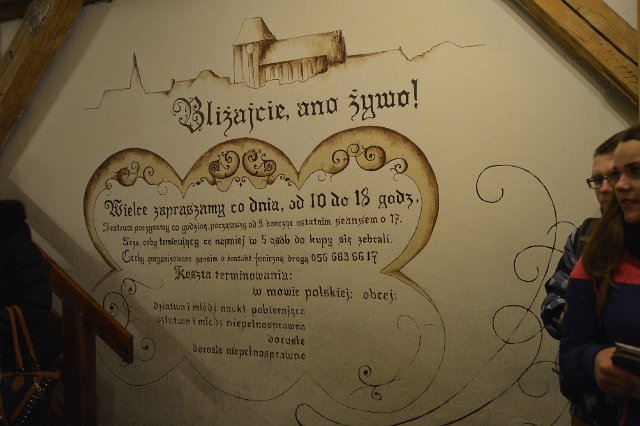 Bliżajcie, ano żywo!
Wielce zapraszamy co dnia, od 10 do 18 godz.
Jestrum poczynamy co godzinę, począwszy od 9 kończąc ostatnim seansem o 17.
coby terminujący co najmniej w 5 osób do kupy się zebrali.
Cechy zorganizowane prosim o kontakt foniczną drogą 056 663 66 17
Koszta terminowania:
w mowie polskiej: obcej:
dziatwa i młódź nauki pobierająca
dziatwa i młódź niepełnosprawna
dorosłe
dorosłe niepełnosprawne